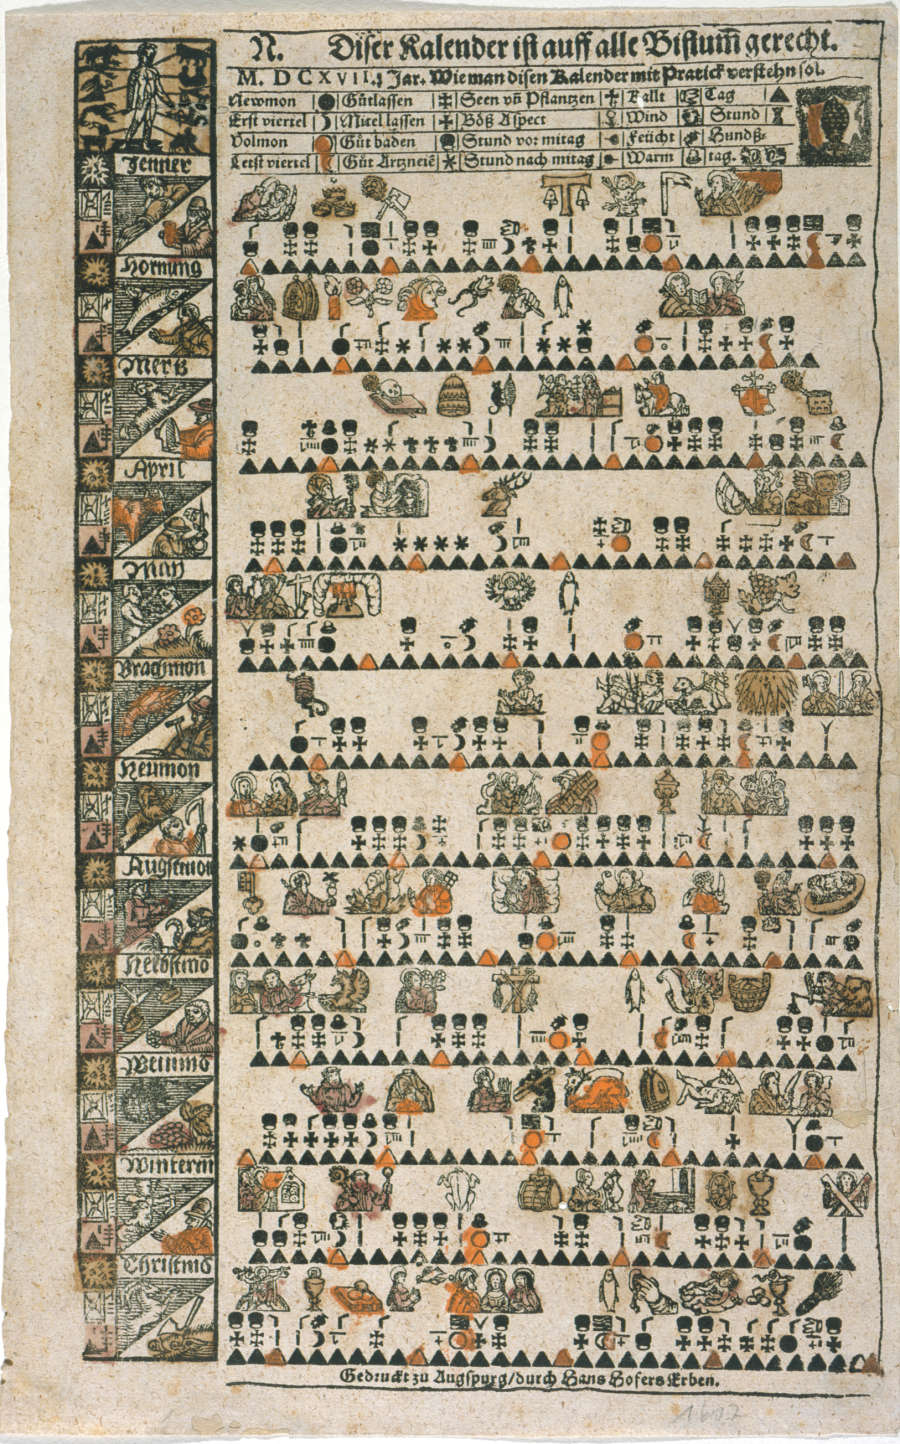 N. Diser Kalender ist auff alle Bistum̃ gerecht.
M. D C X V I I. Jar. Wie man disen Kalender mit Pratick verstehn sol.
Newmon Gůtlassen Seen vñ Pflantzen Kallt Tag
Erst viertel Mitel lassen Bőß Aspect Wind Stund
Volmon Gůt baden Stund vor mitag Feücht Hundß-
Letst viertel Gůt Artzneiẽ Stund nach mitag Warm tag.
Jenner
Hornung
Mertz
April
May
Brachmon
Heumon
Augstmon
Herbstmõ
Weinmõ
Winterm
Christmõ
Gedruckt zu Augspurg/durch Hans Hofers Erben.
1617